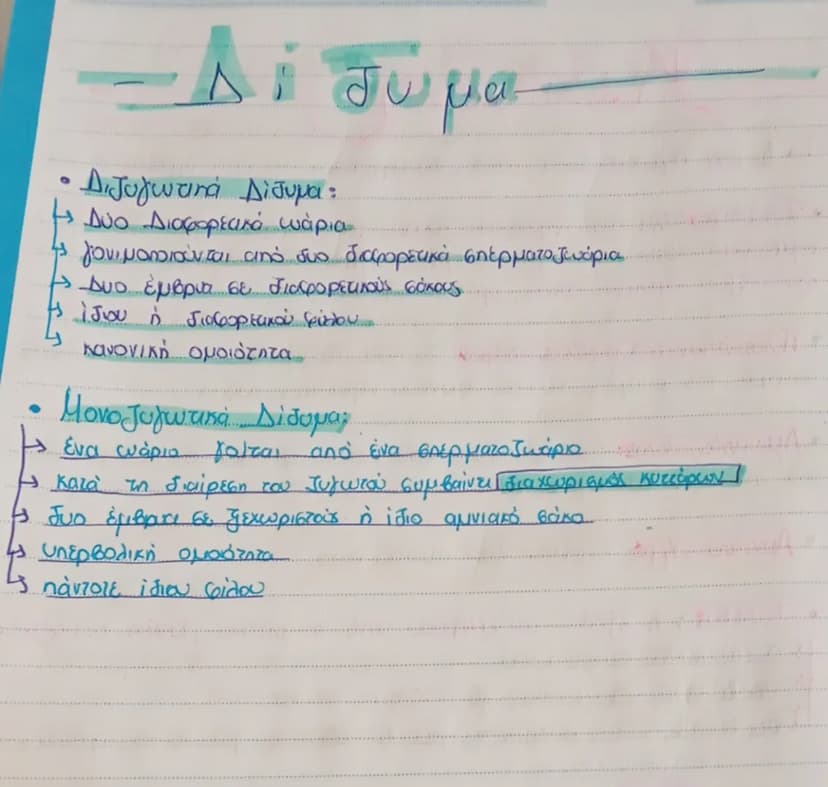 Δίδυμα
• Διζυγωτικά Δίδυμα:
↳ Δυο Διαφορετικά ωάρια
↳ γονιμοποιούνται από δυο διαφορετικά σπερματοζωάρια
↳ Δυο έμβρυα σε διαφορετικούς σάκους
↳ ίδιου ή διαφορετικού φύλου
↳ κανονική ομοιότητα
• Μονοζυγωτικά Δίδυμα:
↳ Ένα ωάριο από ένα σπερματοζωάριο
↳ κατά τη διαίρεση του ζυγωτού συμβαίνει διαχωρισμός κυττάρων
↳ δυο σε ξεχωριστούς ή ίδιο αμνιακό σάκο
↳ υπερβολική ομοιότητα
↳ πάντοτε ίδιου φύλου